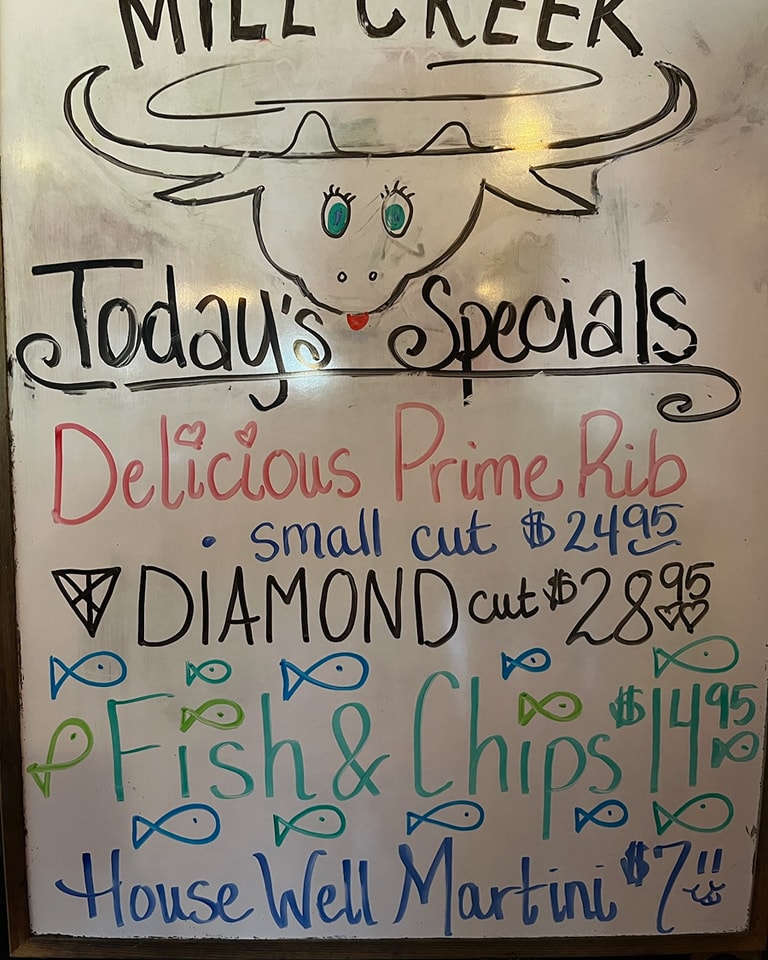 MILL CREEK
Today's Specials
Delicious Prime Rib
• small cut $24.95
DIAMOND cut $28.95
Fish & Chips $14.95
House Well Martini $7